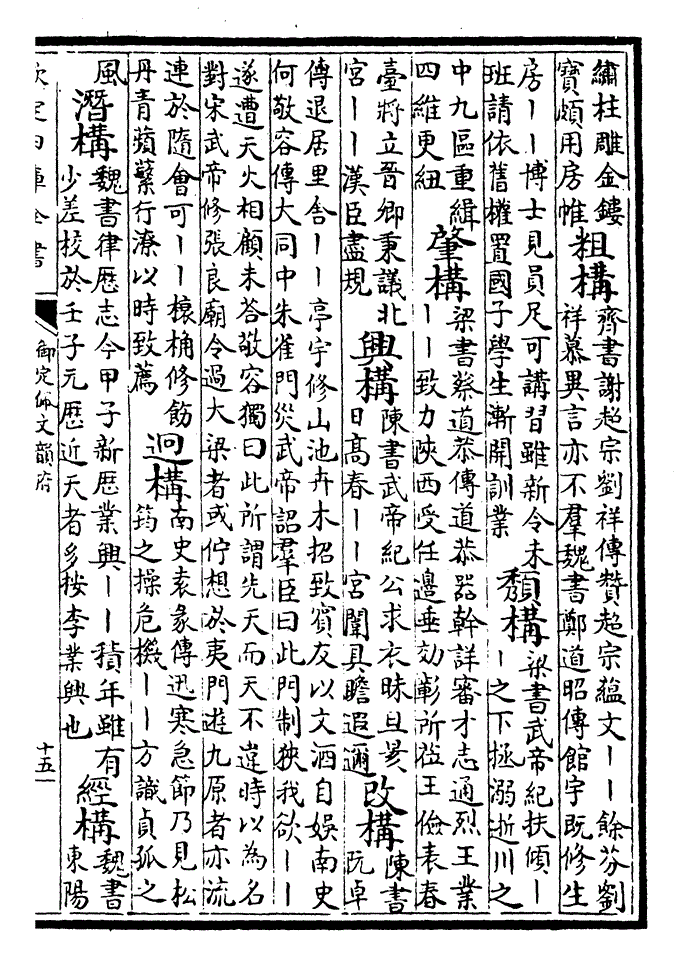 繡柱雕金鏤
寶頗用房帷
粗構
齊書謝超宗劉祥傳贊超宗蘊文丨丨餘芬劉
祥慕異言亦不羣魏書鄭道昭傳館宇既修生
房丨丨博士見員足可講習雖新令未
班請依舊權置國子學生漸開訓業
頹構
梁書武帝紀扶傾丨
丨之下拯溺逝川之
中九區重緝
四維更紐
肇構
梁書蔡道恭傳道恭器幹詳審才志通烈王業
丨丨致力陝西受任邊垂効彰所莅王儉表春
臺將立晉卿秉議北
宮丨丨漢臣盡規
興構
陳書武帝紀公求衣昧旦昃
日髙舂丨丨宮闈具瞻遐邇
改構
陳書
阮卓
傳退居里舍丨丨亭宇修山池卉木招致賔友以文酒自娛南史
何敬容傳大同中朱雀門災武帝謂羣臣曰此門制狹我欲丨丨
遂遭天火相顧未答敬容獨曰此所謂先天而天不違時以為名
對宋武帝修張良廟令過大梁者或佇想於夷門遊九原者亦流
連於隨會可丨丨榱桷修飭
丹青蘋蘩行潦以時致薦
迥構
南史袁彖傳迅寒急節乃見松
筠之操危機丨丨方識貞孤之
風
潛構
魏書律厯志今甲子新厯業興丨丨積年雖有
少差校於壬子元厯近天者多按李業興也
經構
魏書
東陽
欽定四庫全書
御定佩文韻府
十五